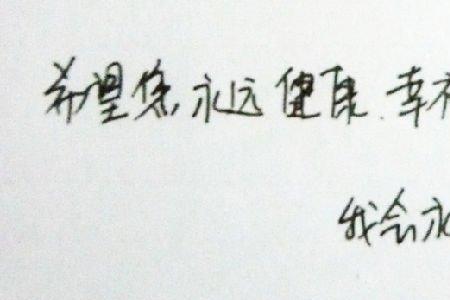 希望您永远健康.幸福
我会永